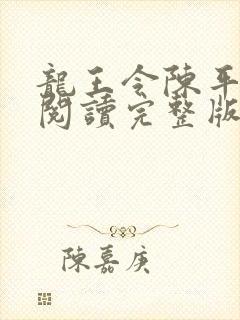 龍王令陳平
閱讀完整版
陳嘉庚